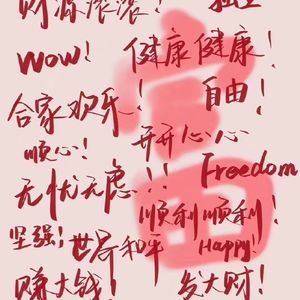 财源滚滚! 独立
wow! 健康健康!
合家欢乐! 自由!
顺心! 开开心心
无忧无虑!!! Freedom
顺利顺利!
坚强! 世界和平 Happy!
赚大钱! 发大财!